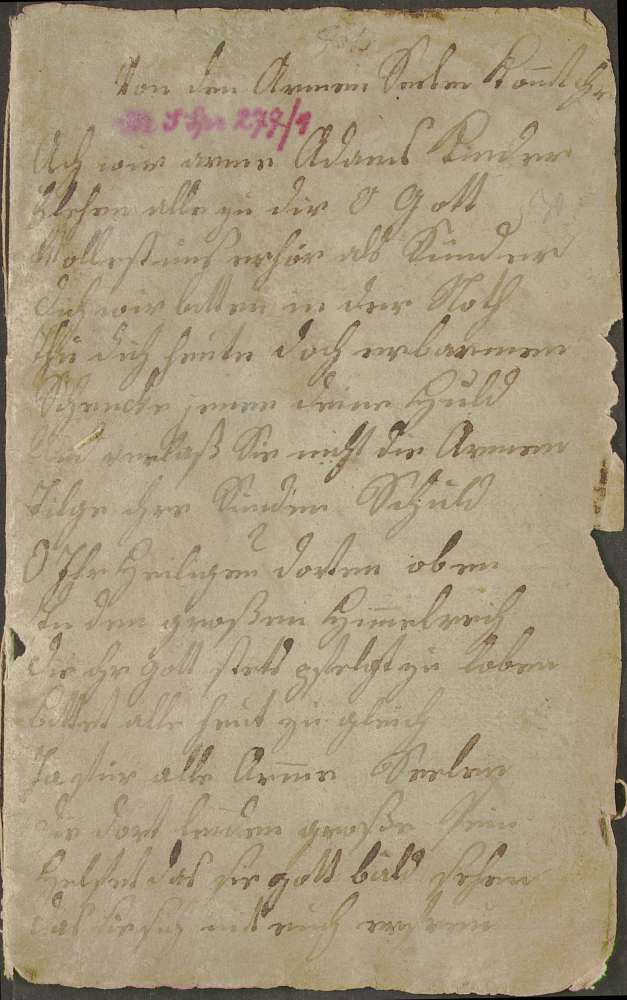 Von den Armen Seelen Kommt ihr
279/1
Ach wir arme Adams Kinder
Flehen alle zu dir O Gott
Wollest uns erhör als Kinder
Dich wir bitten in der Noth
Thu dich heute doch erbarmen
Schencke jenen deine Huld
Und verlaß Sie nicht die Armen
Tilge ihre Sünden Schuld
2
O Ihr Heiligen dorten oben
In dem großen Himmelreich
Die ihr Gott stets pflegt zu loben
bittet alle heut zu gleich
Ja für alle Arme Seelen
die dort leiden große Pein
Helfet das sie Gott bald sehen
das sie sich mit euch erfreun